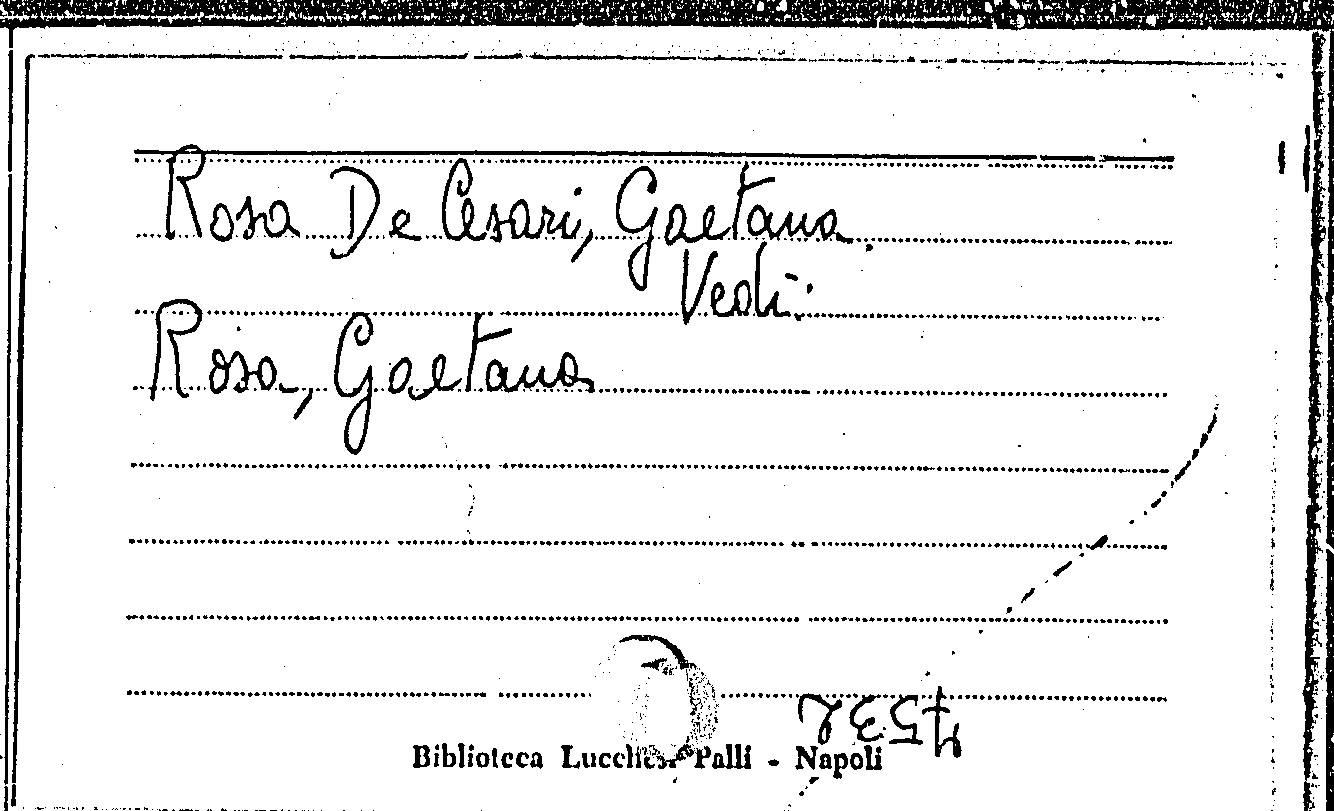 Rosa De Cesari, Gaetana.
Vedi:
Rosa, Gaetana
7532
Biblioteca Lucchesi Palli - Napoli